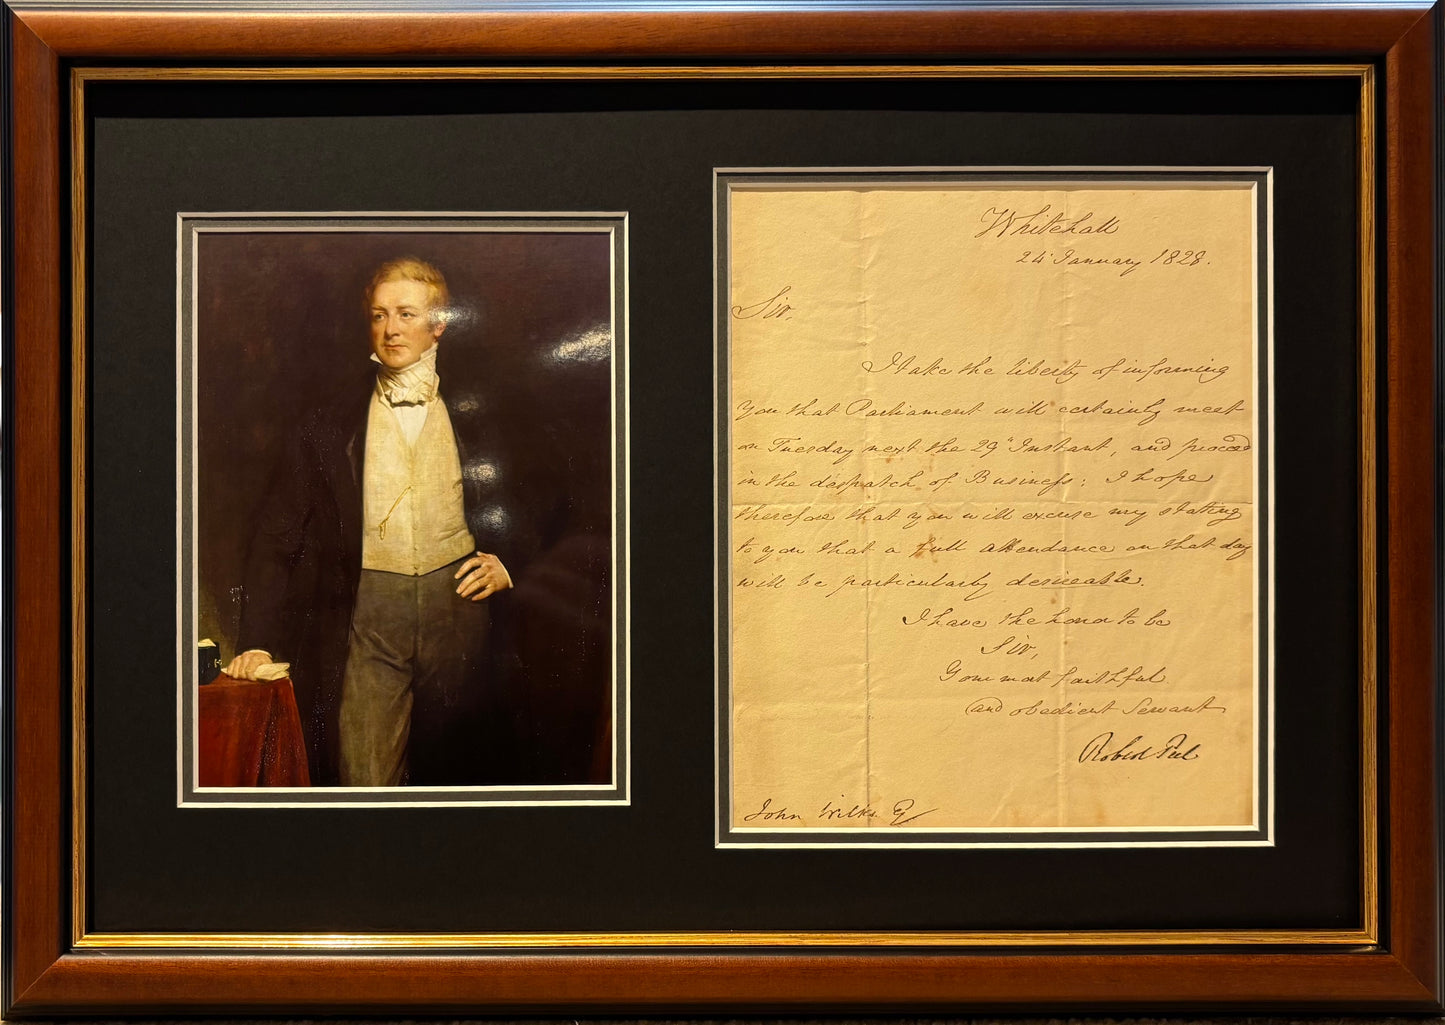 Whitehall
24 January 1828.
Sir,
I take the liberty of informing
you that Parliament will certainly meet
on Tuesday next the 29th Instant, and proceed
in the despatch of Business: I hope
therefore that you will excuse my stating
to you that a full attendance on that day
will be particularly desireable.
I have the honor to be
Sir,
Your most faithful
and obedient Servant
Robert Peel
John Wilks Esq